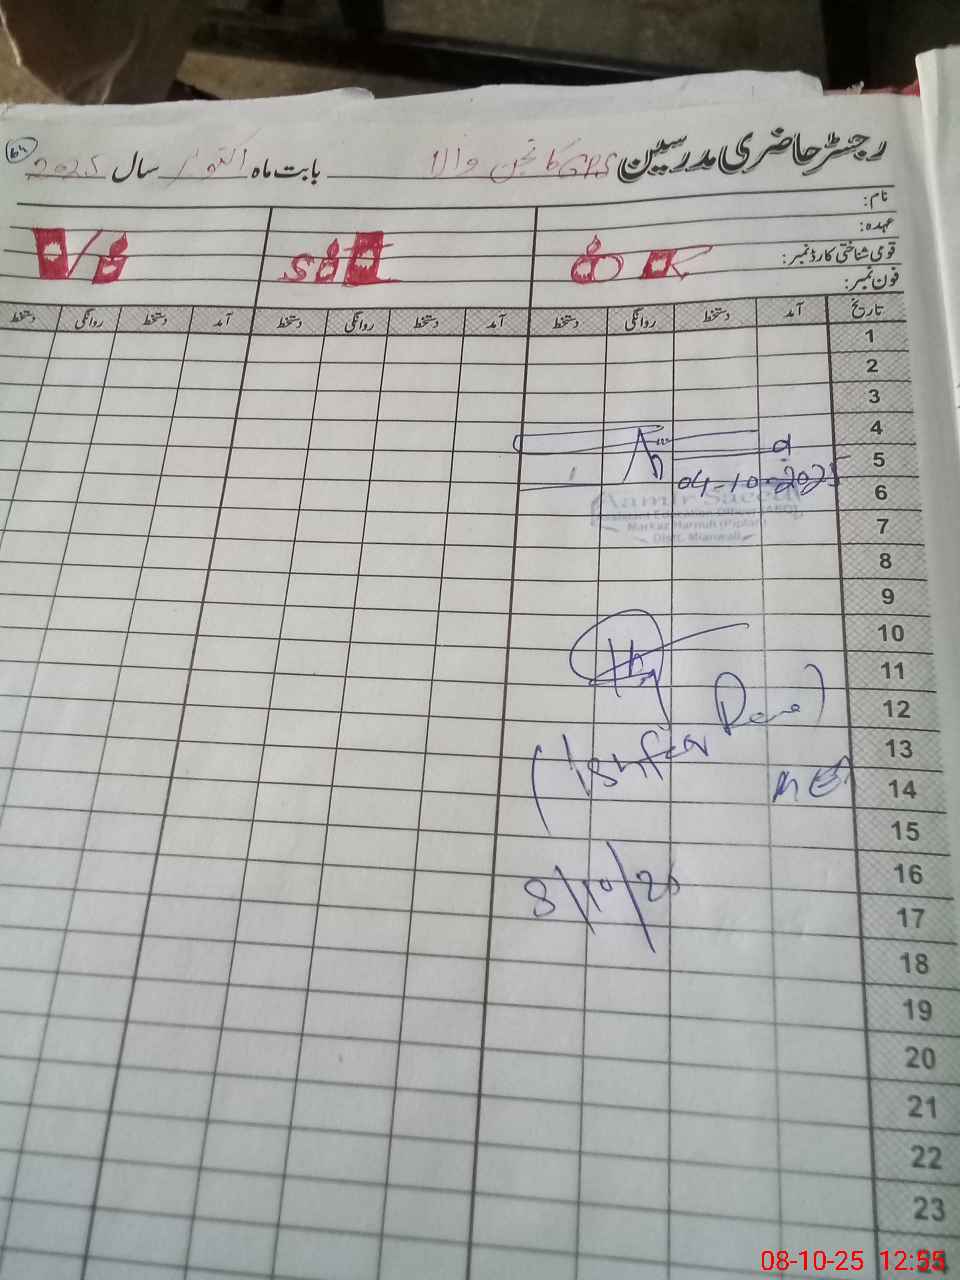 رجسٹر حاضری مدرسین GPS کانجن والا بابت ماہ اکتوبر سال 2025
نام:
عہدہ:
قومی شناختی کارڈ نمبر:
فون نمبر:
تاریخ آمد دستخط روانگی دستخط آمد دستخط روانگی دستخط آمد دستخط روانگی دستخط
1
2
3
4
5
04-10-2025
6
Aamir Saeed
7
Markaz Harnuli (Piplan)
Distt. Mianwali
8
9
10
11
12
13
14
15
16
8/10/25
17
18
19
20
21
22
23
08-10-25 12:55